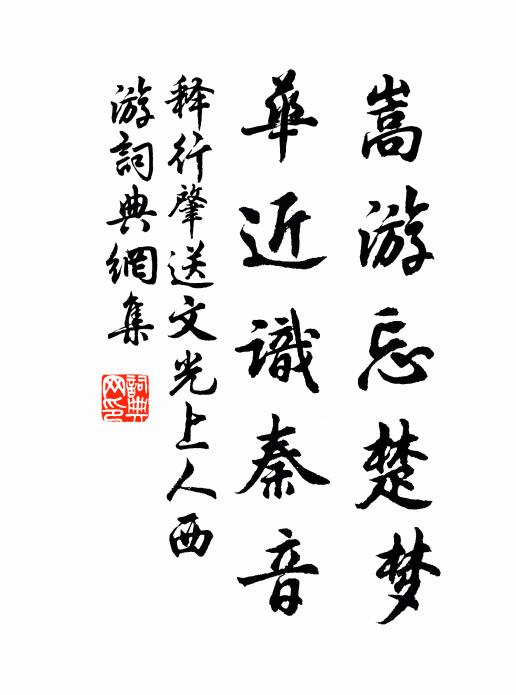 嵩游忘楚梦
華近識秦音
释行肇送文光上人西
游詞典網集
詞典网印